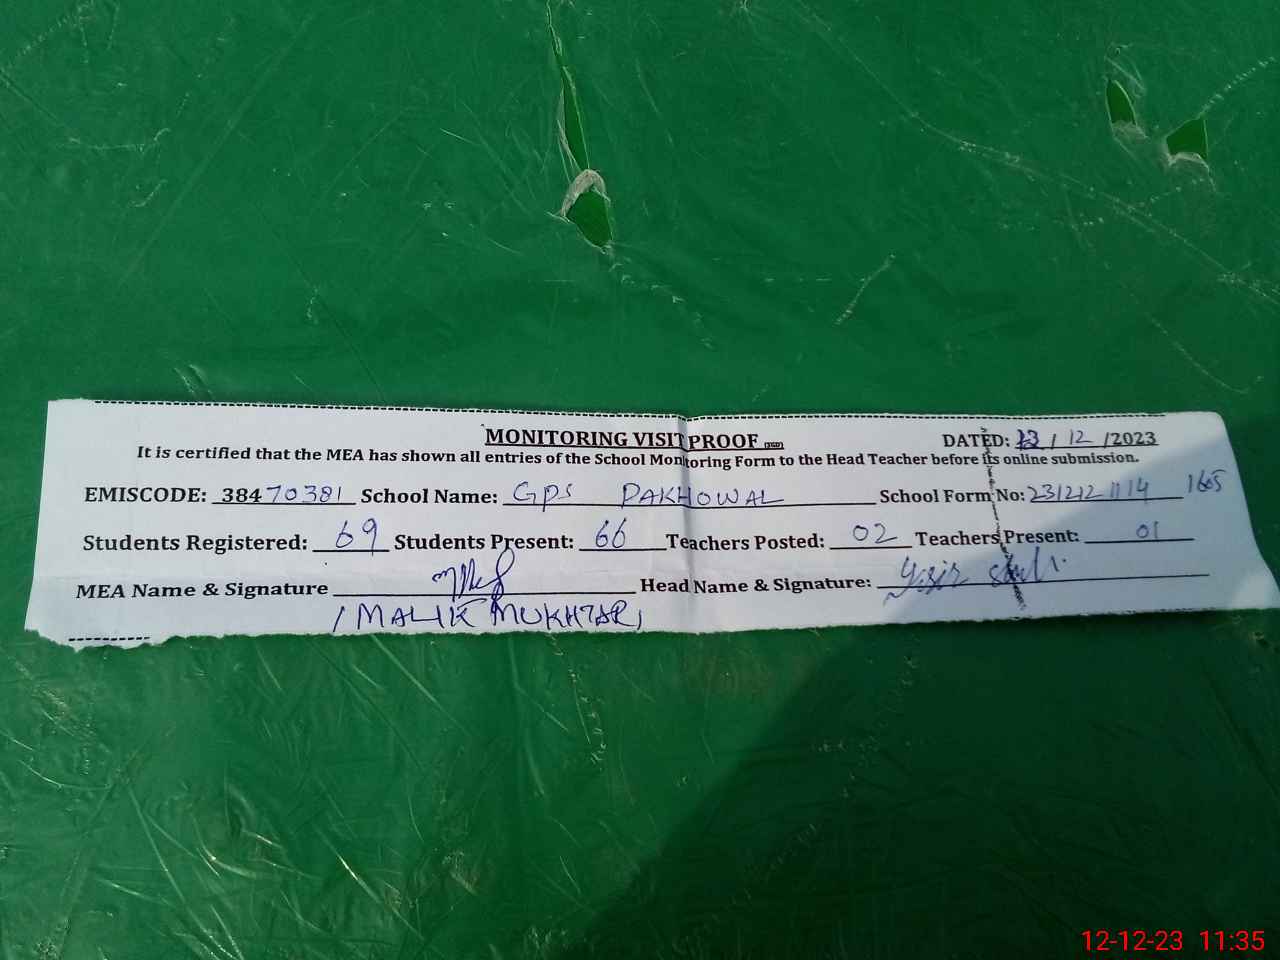 MONITORING VISIT PROOF
DATED: 12 / 12 /2023
It is certified that the MEA has shown all entries of the School Monitoring Form to the Head Teacher before its online submission.
EMISCODE: 38470381 School Name: GPS PAKHOWAL School Form No: 231212 1114 1605
Students Registered: 69 Students Present: 66 Teachers Posted: 02 Teachers Present: 01
MEA Name & Signature Head Name & Signature:
(MALIK MUKHTAR)
12-12-23 11:35